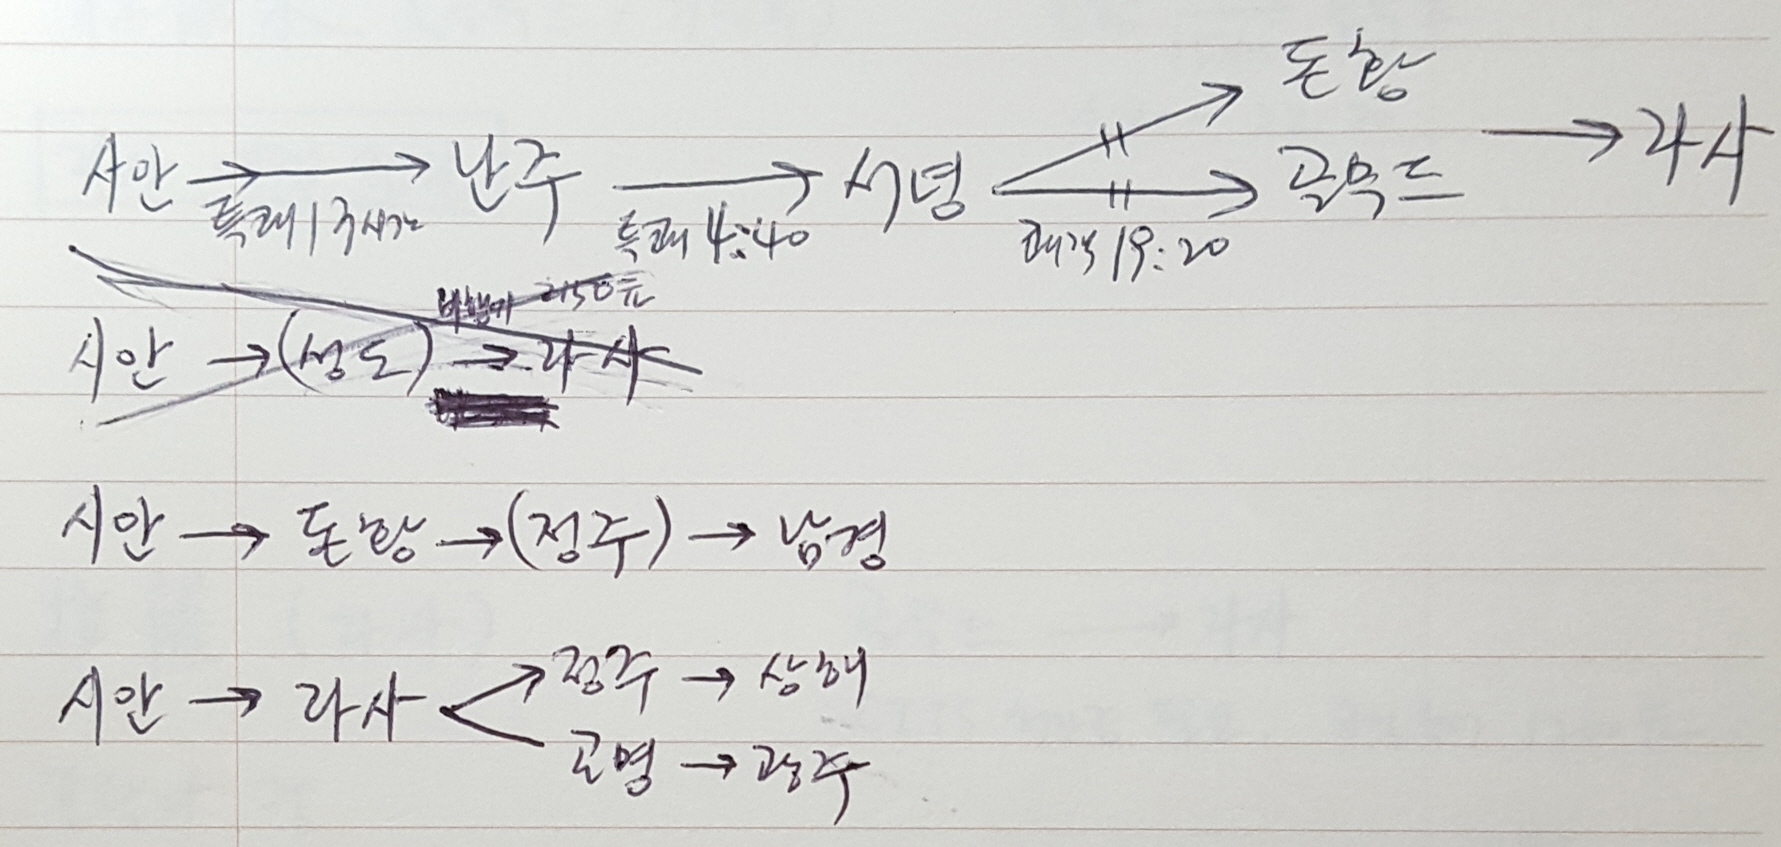 돈황
시안 → 난주 → 서녕 → 골무드 → 라사
특쾌 13시간 특쾌 4:40 쾌객 19:20
비행기 2150元
시안 → (성도) → 라사
시안 → 돈황 → (정주) → 남경
정주 → 상해
시안 → 라사
곤명 → 광주